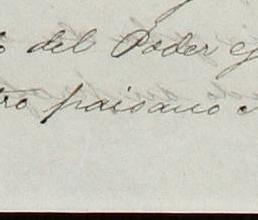 del Poder ej
tro paisano